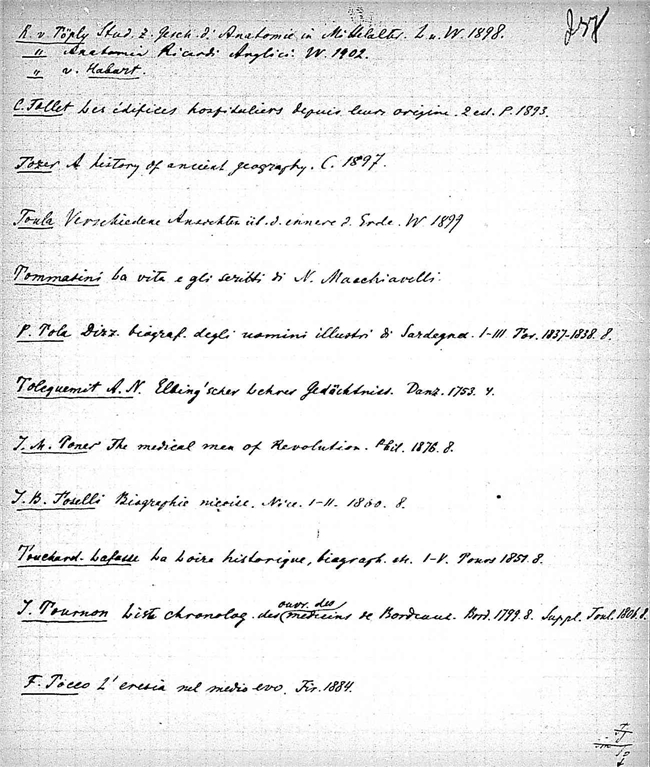 R. v. Töply Stud. z. Gesch. d. Anatomie in Mittelalter. L u. W 1898.
" Anatomia Ricardi Anglici. W. 1902.
" v. Habart.
C. Tollet Les édifices hospitaliers depuis leurs origine. 2 ed. P. 1893.
Tozer A history of ancient geography. C. 1897.
Toula Verschiedene Ansichten üb. d. innere d. Erde. W 1899
Tommasini La vita e gli scritti di N. Macchiavelli.
P. Tola Dizz. biograf. degli uomini illustri di Sardegna. I-III Tor. 1837-1838. 8.
Tolcquemit A. N. Elbing'scher Lehrer Gedächtniss. Danz. 1753. 4.
J. M. Toner The medical men of Revolution. Phil. 1876. 8.
J. B. Toselli Biographie niçoise. Nice. I-II. 1860. 8.
Touchard-Lafosse La Loire historique, biograph. etc. I-V. Tours 1851. 8.
J. Tournon Liste chronolog. des ouvr. des medicins de Bordeaux. Bord. 1799. 8. Suppl. Toul. 1806. 8.
F. Tocco L'eresia nel medio evo. Fir. 1884.